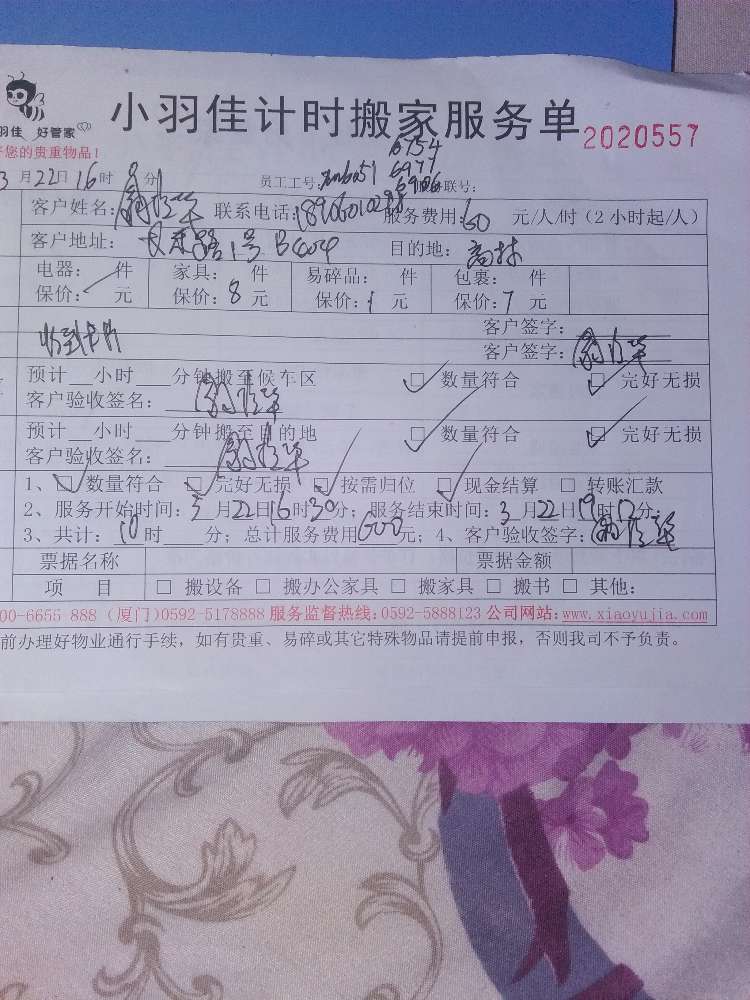 小羽佳计时搬家服务单 2020557
羽佳 好管家
您的贵重物品！
6754
6977
3月22日16时 分 员工工号： 联号：
客户姓名： 联系电话： 服务费用：60 元/人/时（2小时起/人）
客户地址： 路1号 目的地：高林
电器： 件 家具： 件 易碎品： 件 包裹： 件
保价： 元 保价：8元 保价：1元 保价：7元
客户签字：
收到卡片 客户签字：
预计__小时___分钟搬至候车区 □ 数量符合 □ 完好无损
客户验收签名：
预计__小时___分钟搬至目的地 □ 数量符合 □ 完好无损
客户验收签名：
1、□ 数量符合 □ 完好无损 □ 按需归位 □ 现金结算 □ 转账汇款
2、服务开始时间：3月22日16时30分；服务结束时间：3月22日19时 分；
3、共计：10时___分；总计服务费用600元；4、客户验收签字：
票据名称 票据金额
项 目 □ 搬设备 □ 搬办公家具 □ 搬家具 □ 搬书 □ 其他：
00-6655 888（厦门）0592-5178888 服务监督热线：0592-5888123 公司网站：www.xiaoyujia.com
前办理好物业通行手续，如有贵重、易碎或其它特殊物品请提前申报，否则我司不予负责。